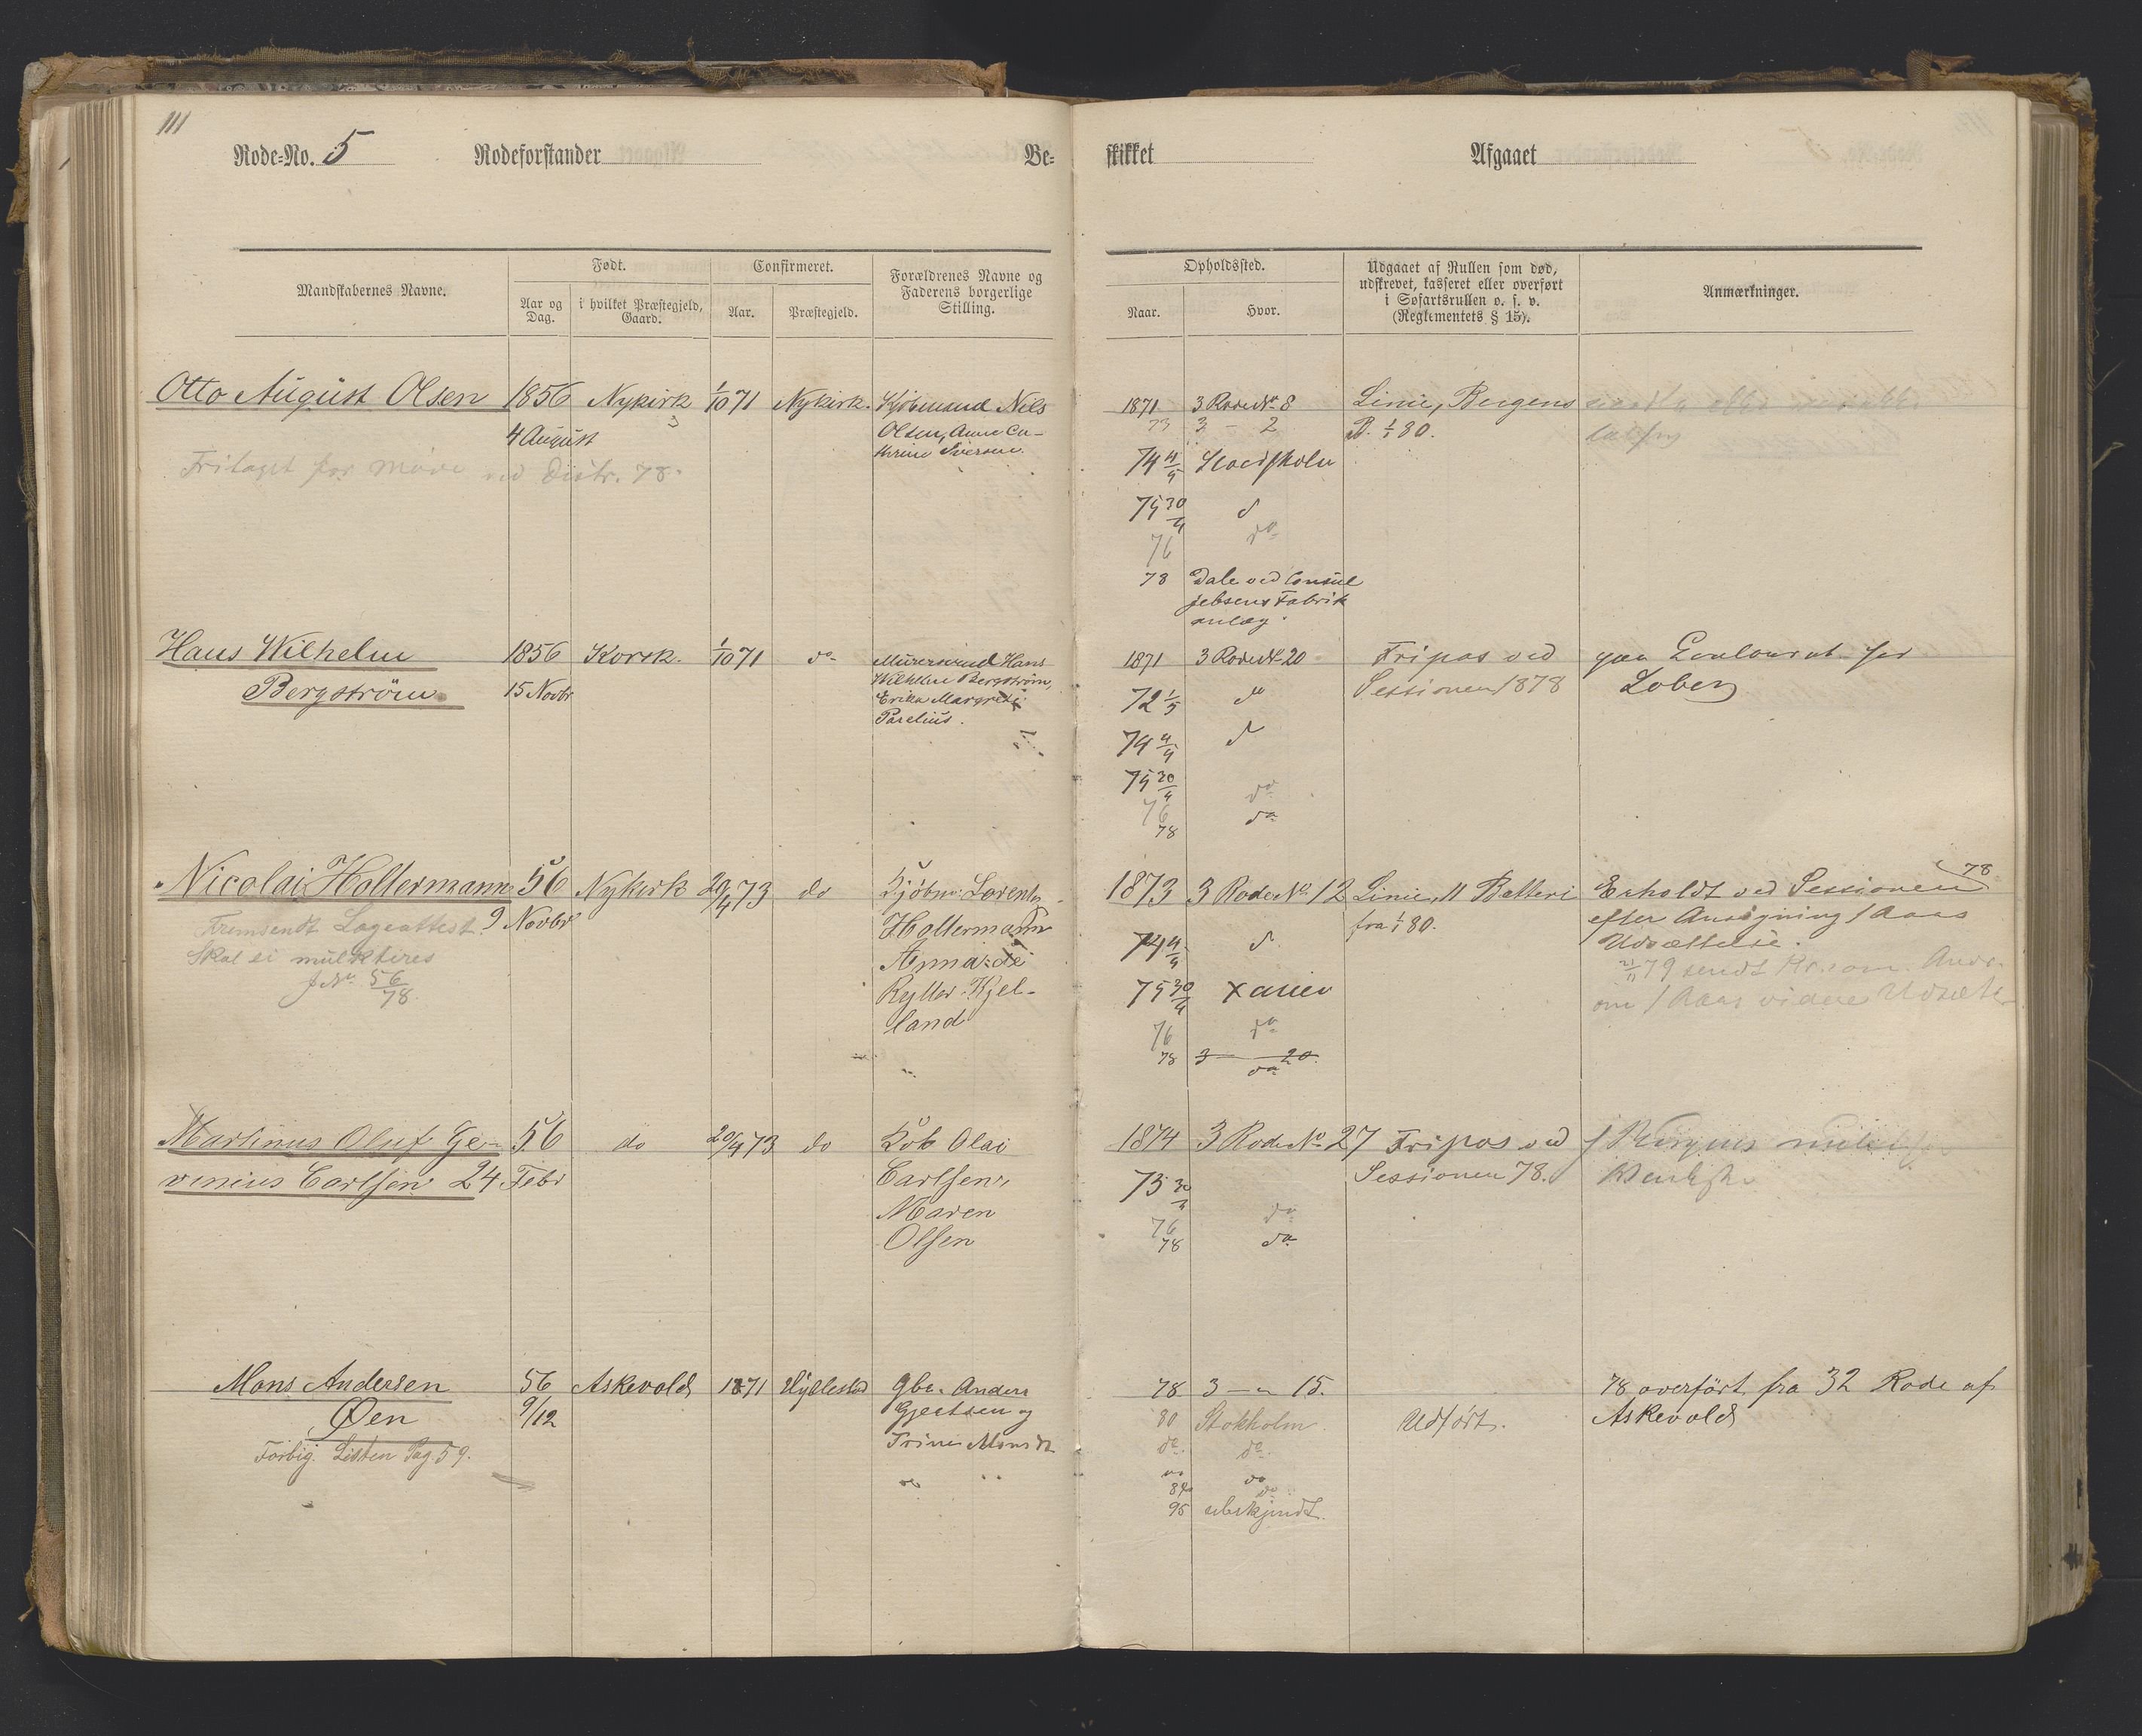 111
Rode-No. 5 Rodeforstander Be-
Mandskabernes Navne.
Født.
Aar og Dag.
i hvilket Præstegjeld, Gaard.
Confirmeret.
Aar.
Præstegjeld.
Forældrenes Navne og
Faderens borgerlige
Stilling.
Otto August Olsen 1856 Nykirk 1/10 71 Nykirk. Kjöbmand Nils
4 August Olsen, Anne Ca-
thrine Iversen.
Fritaget for Møde ved Distr. 78.
Hans Wilhelm 1856 Korsk. 1/10 71 do Murersvend Hans
Bergström 15 Novbr Wilhelm Bergström,
Erika Margrethe
Parelius.
Nicolai Holtermann 56 Nykirk 20/4 73 do Kjöbm: Lorentz
9 Novbr Holtermann
Fremsendt Lægeattest.
Skal ei mulkteres Anna
J No 56/78. Kjel-
land
Martinus Oluf Ge- 56 do 20/4 73 do Olai
vinius Carlsen 24 Febr Carlsen,
Maren
Olsen
Mons Andersen 56 Askevold 1871 Hyllestad gbr. Anders
Øen 9/12 Gjertsen og
Forbig. Listen Pag. 59. Trine Monsdr
skikket Afgaaet
Opholdssted.
Naar.
Hvor.
Udgaaet af Rullen som død,
udskrevet, kasseret eller overført
i Søfartsrullen o. s. v.
(Reglementets § 15).
Anmærkninger.
1871 3 Rode No 8 Linie, Bergens
73 3 - 2 B. 1/1 80.
74 4/4
75 30/4 d
76 do
78 Dale ved Consul
Jebsens Fabrik
anlæg.
1871 3 Rode No 20 Fripas ved
72 1/5 do Sessionen 1878
74 4/4 d
75 30/4
76 do
78 do
1873 3 Rode No 12 Linie, 11 Batteri Erholdt ved Sessionen 78
fra 1/1 80. efter Ansøgning 1 Aars
74 4/4 d Udsættelse.
75 30/4
76 do om 1 Aars videre
78 3 - 20.
do
1874 3 Rode No 27 Fripas ved
75 30/4 Sessionen 78.
76 do
78 do
78 3 - " 15. 78 overfört fra 32 Rode af
80 Stokholm Udfört. Askevold
do. do.
do do
do
95 ubekjendt.